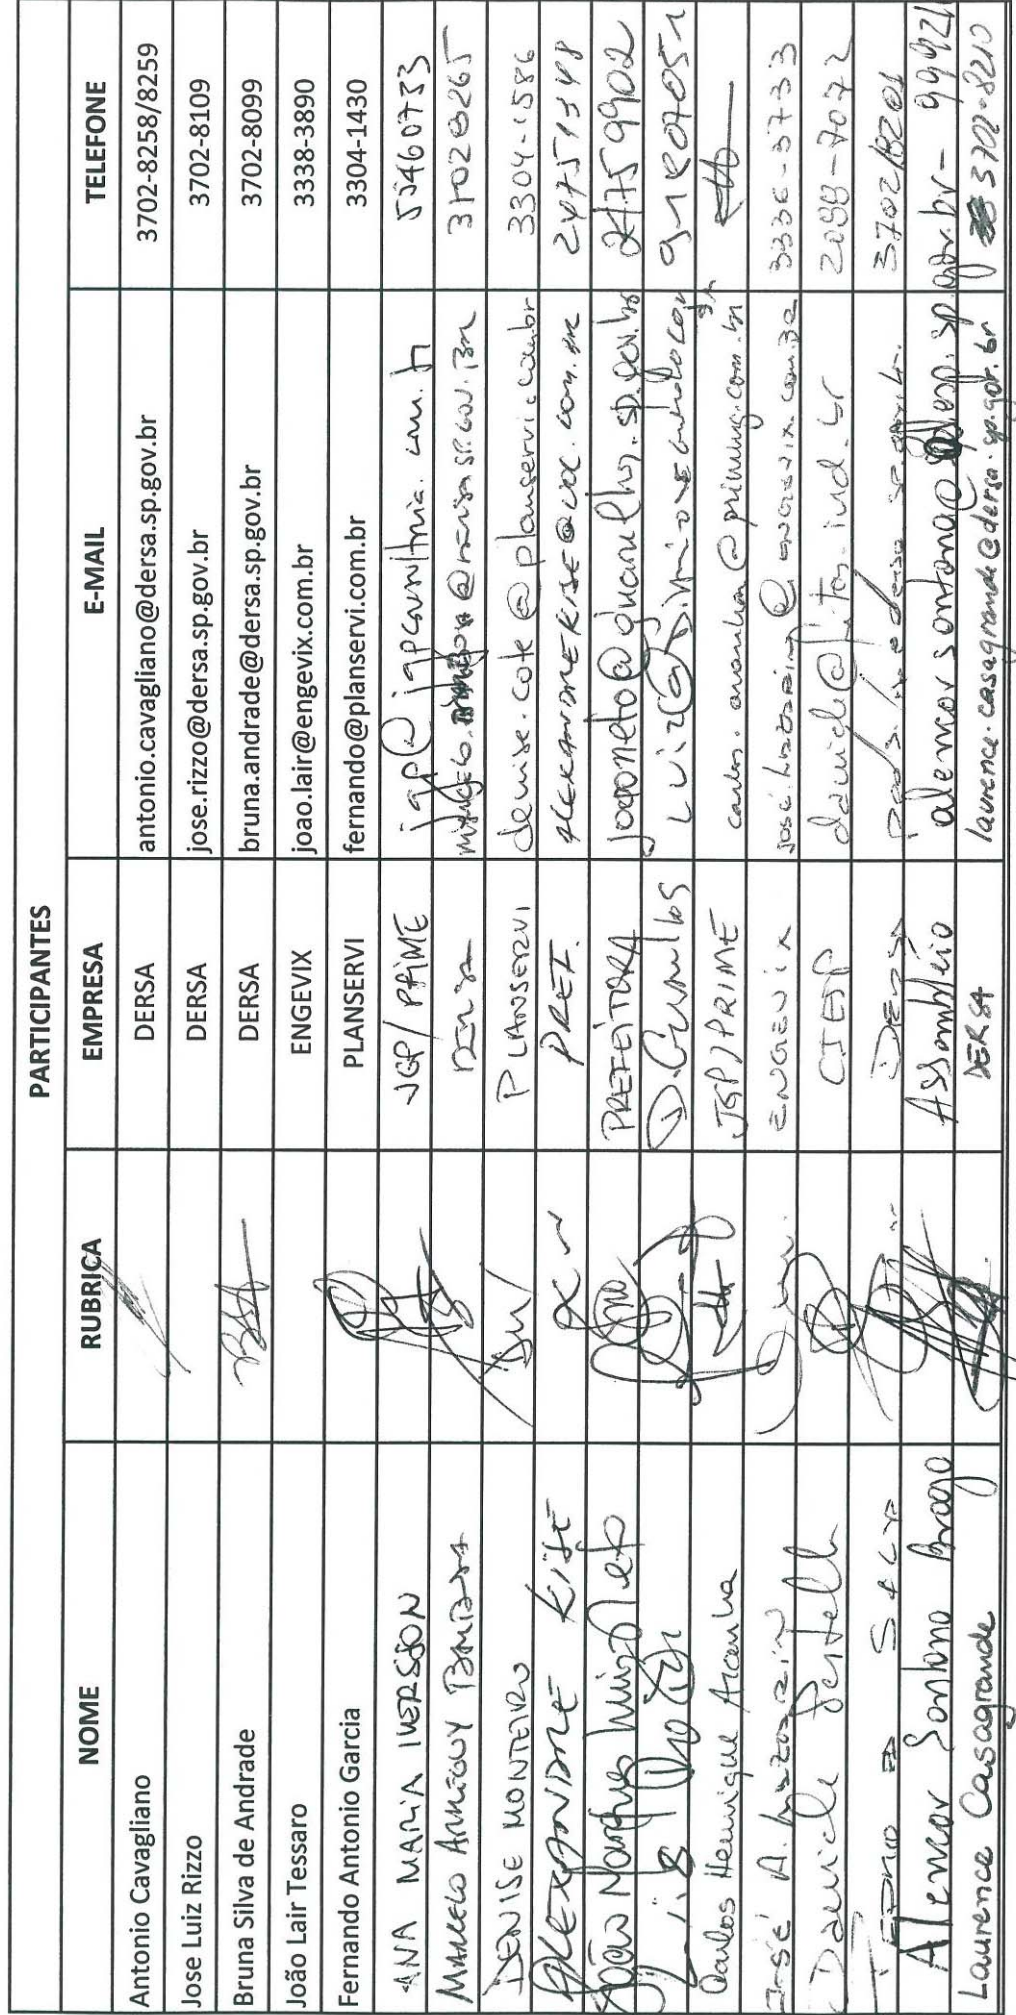 PARTICIPANTES
NOME RUBRICA EMPRESA E-MAIL TELEFONE
Antonio Cavagliano DERSA antonio.cavagliano@dersa.sp.gov.br 3702-8258/8259
Jose Luiz Rizzo DERSA jose.rizzo@dersa.sp.gov.br 3702-8109
Bruna Silva de Andrade DERSA bruna.andrade@dersa.sp.gov.br 3702-8099
João Lair Tessaro ENGEVIX joao.lair@engevix.com.br 3338-3890
Fernando Antonio Garcia PLANSERVI fernando@planservi.com.br 3304-1430
ANA MARIA IVERSSON JGP/PRIME jgp@jgpconsultoria.com.br 55460733
MARCELO DERSA 31028265
DENISE MONTEIRO PLANSERVI denise.cote@planservi.com.br 3304-1586
ALEXANDRE KISE PREF. ALEXANDREKISE@UOL.COM.BR 24751348
João Neto PREFEITURA 24759902
Luiz
Carlos Henrique Aranha JGP/PRIME carlos.aranha@primeng.com.br
José A. ENGEVIX 3336-3733
Daniele Pestelli CIESP 2088-7072
DERSA 3702/8201
Alencar Santana Braga Assembléia alencarsantana@alesp.sp.gov.br - 99921
Laurence Casagrande DERSA laurence.casagrande@dersa.sp.gov.br 3702-8210